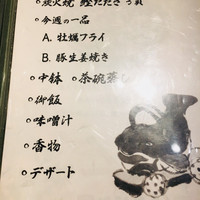 ○炭火焼 鰹たたき
○今週の一品
A. 牡蠣フライ
B. 豚生姜焼き
○中鉢 ○茶碗蒸し
○御飯
○味噌汁
○香物
○デザート